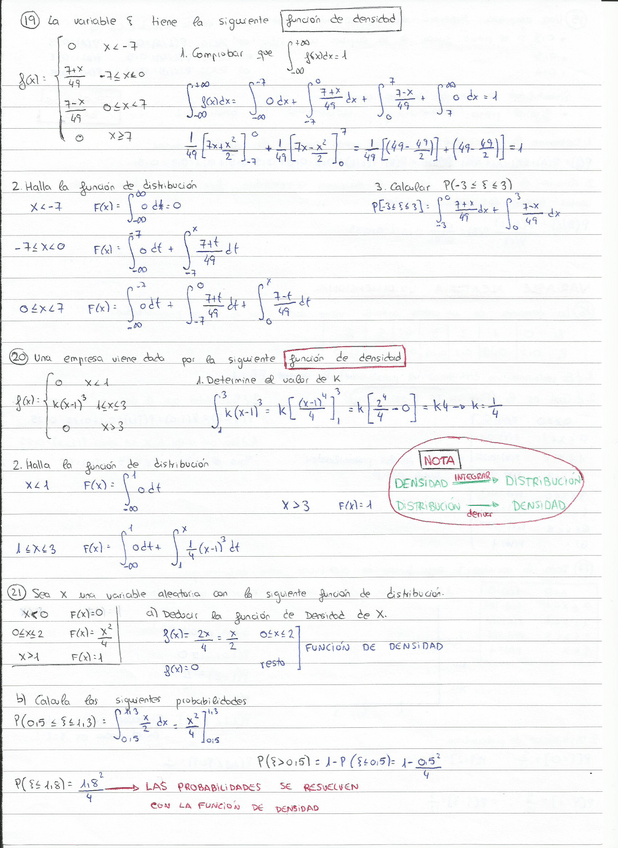 19 La variable ξ tiene la siguiente función de densidad
f(x)= { 0 x<-7
7+x/49 -7≤x<0
7-x/49 0≤x<7
0 x≥7
1. Comprobar que ∫_{-∞}^{+∞} f(x)dx=1
∫_{-∞}^{+∞} f(x)dx= ∫_{-∞}^{-7} 0 dx + ∫_{-7}^{0} 7+x/49 dx + ∫_{0}^{7} 7-x/49 + ∫_{7}^{∞} 0 dx = 1
1/49 [7x+x²/2]_{-7}^{0} + 1/49 [7x-x²/2]_{0}^{7} = 1/49 [(49-49/2)] + (49-49/2)] = 1
2. Halla la función de distribución
x<-7 F(x)= ∫_{-∞}^{∞} 0 dt = 0
-7≤x<0 F(x)= ∫_{-∞}^{-7} 0 dt + ∫_{-7}^{x} 7+t/49 dt
0≤x<7 F(x)= ∫_{-∞}^{-7} 0dt + ∫_{-7}^{0} 7+t/49 dt + ∫_{0}^{x} 7-t/49 dt
3. Calcular P(-3≤ξ≤3)
P[-3≤ξ≤3]= ∫_{-3}^{0} 7+x/49 dx + ∫_{0}^{3} 7-x/49 dx
20 Una empresa viene dada por la siguiente función de densidad
f(x)= { 0 x<1
k(x-1)³ 1≤x≤3
0 x>3
1. Determine el valor de K
∫_{1}^{3} k(x-1)³ = k [(x-1)⁴/4]_{1}^{3} = k [2⁴/4 - 0] = k4 → k=1/4
2. Halla la función de distribución
x<1 F(x)= ∫_{-∞}^{1} 0 dt
x>3 F(x)=1
1≤x≤3 F(x)= ∫_{-∞}^{1} 0dt + ∫_{1}^{x} 1/4 (x-1)³ dt
NOTA
DENSIDAD INTEGRAR → DISTRIBUCIÓN
DISTRIBUCIÓN derivar → DENSIDAD
21 Sea X una variable aleatoria con la siguiente función de distribución.
x<0 F(x)=0
0≤x≤2 F(x)=x²/4
x>1 F(x)=1
a) Deducir la función de Densidad de X.
f(x)= 2x/4 = x/2 0≤x≤2
f(x)=0 resto
FUNCIÓN DE DENSIDAD
b) Calcula las siguientes probabilidades
P(0,5≤ξ≤1,3) = ∫_{0,5}^{1,3} x/2 dx = x²/4]_{0,5}^{1,3}
P(ξ>0,5)= 1-P(ξ≤0,5)= 1-0,5²/4
P(ξ≤1,8)= 1,8²/4 → LAS PROBABILIDADES SE RESUELVEN
CON LA FUNCIÓN DE DENSIDAD